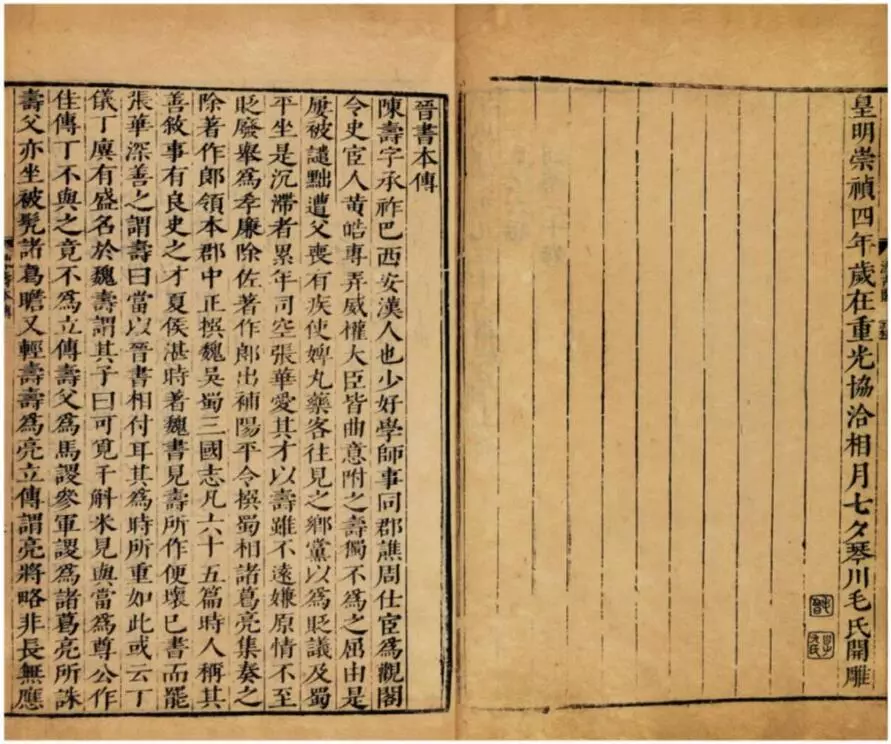 皇明崇禎四年歲在重光協洽相月七夕琴川毛氏開雕
晉書本傳
陳壽字承祚巴西安漢人也少好學師事同郡譙周仕宦為觀閣
令史宦人黃皓專弄威權大臣皆曲意附之壽獨不為之屈由是
屢被譴黜遭父喪有疾使婢丸藥客往見之鄉黨以為貶議及蜀
平坐是沉滯者累年司空張華愛其才以壽雖不遠嫌原情不至
貶廢舉為孝廉除佐著作郎出補陽平令撰蜀相諸葛亮集奏之
除著作郎領本郡中正撰魏吳蜀三國志凡六十五篇時人稱其
善敘事有良史之才夏侯湛時著魏書見壽所作便壞已書而罷
張華深善之謂壽曰當以晉書相付耳其為時所重如此或云丁
儀丁廙有盛名於魏壽謂其子曰可覓千斛米見與當為尊公作
佳傳丁不與之竟不為立傳壽父為馬謖參軍謖為諸葛亮所誅
壽父亦坐被髡諸葛瞻又輕壽壽為亮立傳謂亮將略非長無應